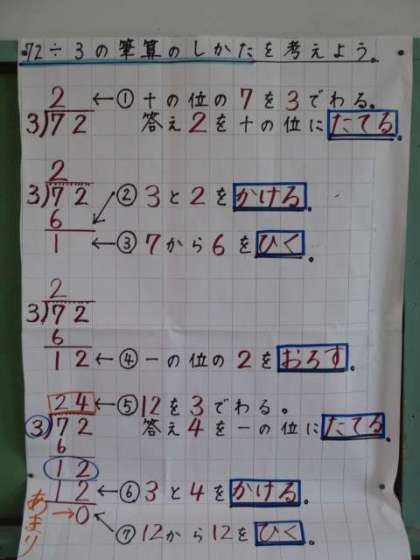 72÷3の筆算のしかたを考えよう。
2 ←①十の位の7を3でわる。
3)72 答え2を十の位にたてる。
2
3)72 ②3と2をかける。
6
1 ←③7から6をひく。
2
3)72
6
12 ←④一の位の2をおろす。
24 ←⑤12を3でわる。
3)72 答え4を一の位にたてる。
6
12
12 ←⑥3と4をかける。
あまり→0 ⑦12から12をひく。